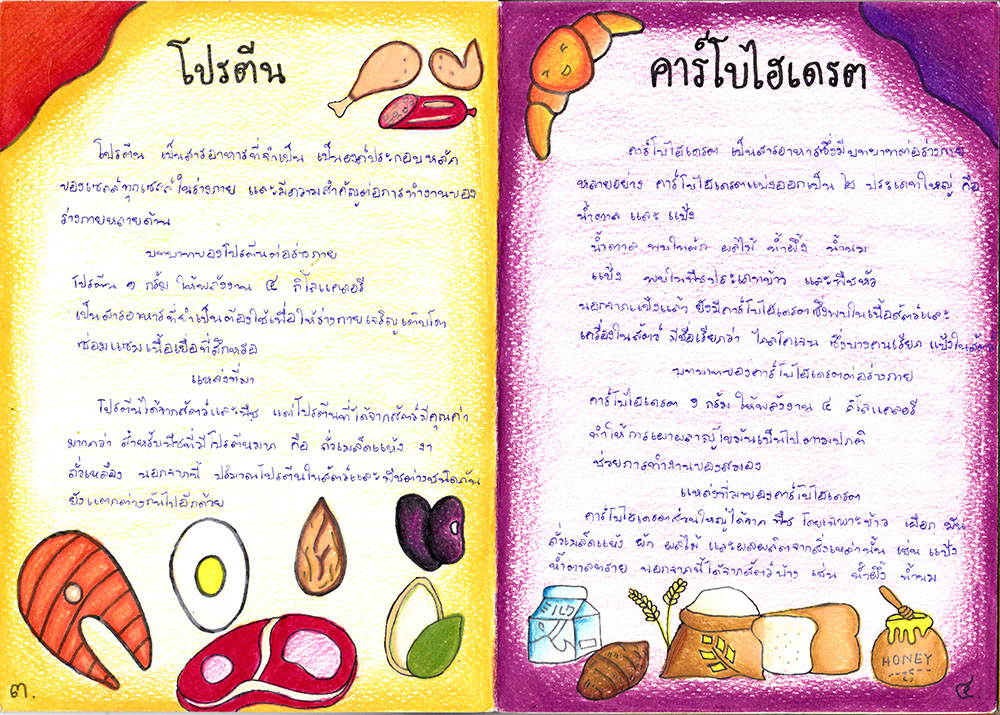 โปรตีน
โปรตีน เป็นสารอาหารที่จำเป็น เป็นองค์ประกอบหลัก
ของเซลล์ทุกเซลล์ในร่างกาย และมีความสำคัญต่อการทำงานของ
ร่างกายหลายด้าน
บทบาทของโปรตีนต่อร่างกาย
โปรตีน ๑ กรัม ให้พลังงาน ๔ กิโลแคลอรี
เป็นสารอาหารที่จำเป็นต้องใช้เพื่อให้ร่างกายเจริญเติบโต
ซ่อมแซมเนื้อเยื่อที่สึกหรอ
แหล่งที่มา
โปรตีนได้จากสัตว์และพืช แต่โปรตีนที่ได้จากสัตว์มีคุณค่า
มากกว่า สำหรับพืชที่มีโปรตีนมาก คือ ถั่วเมล็ดแห้ง งา
ถั่วเหลือง นอกจากนี้ ปริมาณโปรตีนในสัตว์และพืชต่างชนิดกัน
ยังแตกต่างกันไปอีกด้วย
๓.
คาร์โบไฮเดรต
คาร์โบไฮเดรต เป็นสารอาหารซึ่งมีบทบาทต่อร่างกาย
หลายอย่าง คาร์โบไฮเดรตแบ่งออกเป็น ๒ ประเภทใหญ่ คือ
น้ำตาล และ แป้ง
น้ำตาล พบในผัก ผลไม้ น้ำผึ้ง น้ำนม
แป้ง พบในพืชประเภทข้าว และพืชหัว
นอกจากแป้งแล้ว ยังมีคาร์โบไฮเดรตซึ่งพบในเนื้อสัตว์และ
เครื่องในสัตว์ มีชื่อเรียกว่า ไกลโคเจน ซึ่งบางคนเรียก แป้งในสัตว์
บทบาทของคาร์โบไฮเดรตต่อร่างกาย
คาร์โบไฮเดรต ๑ กรัม ให้พลังงาน ๔ กิโลแคลอรี
ทำให้การเผาผลาญไขมันเป็นไปตามปกติ
ช่วยการทำงานของสมอง
แหล่งที่มาของคาร์โบไฮเดรต
คาร์โบไฮเดรตส่วนใหญ่ได้จาก พืช โดยเฉพาะข้าว เผือก มัน
ถั่วเมล็ดแห้ง ผัก ผลไม้ และผลผลิตจากสิ่งเหล่านั้น เช่น แป้ง
น้ำตาลทราย นอกจากนี้ได้จากสัตว์บ้าง เช่น น้ำผึ้ง น้ำนม
HONEY
๔